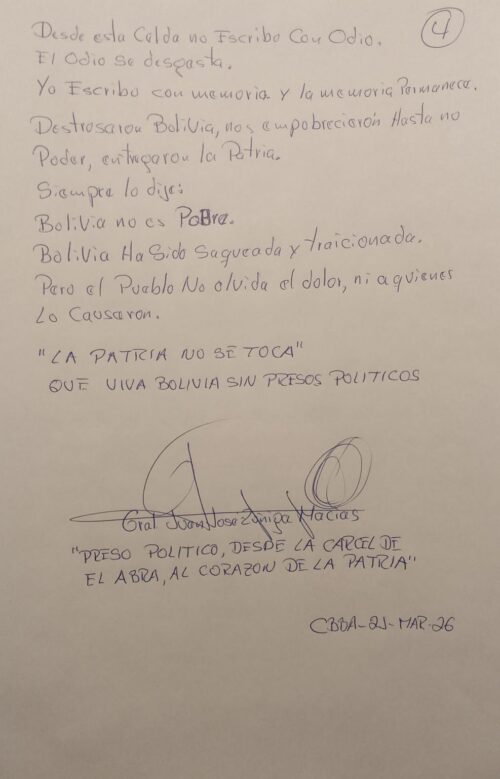 4
Desde esta Celda no Escribo Con Odio.
El Odio se desgasta.
Yo Escribo con memoria y la memoria Permanece.
Destrosaron Bolivia, nos empobrecierón Hasta no
Poder, entregaron la Patria.
Siempre lo dije:
Bolivia no es PoBre.
Bolivia Ha Sido Saqueada y traicionada.
Pero el Pueblo No olvida el dolor, ni a quienes
Lo Causaron.
"LA PATRIA NO SE TOCA"
QUE VIVA BOLIVIA SIN PRESOS POLITICOS
Gral Juan José Zúñiga Macias
"PRESO POLITICO, DESDE LA CARCEL DE
EL ABRA, AL CORAZON DE LA PATRIA"
CBBA-21-MAR-26